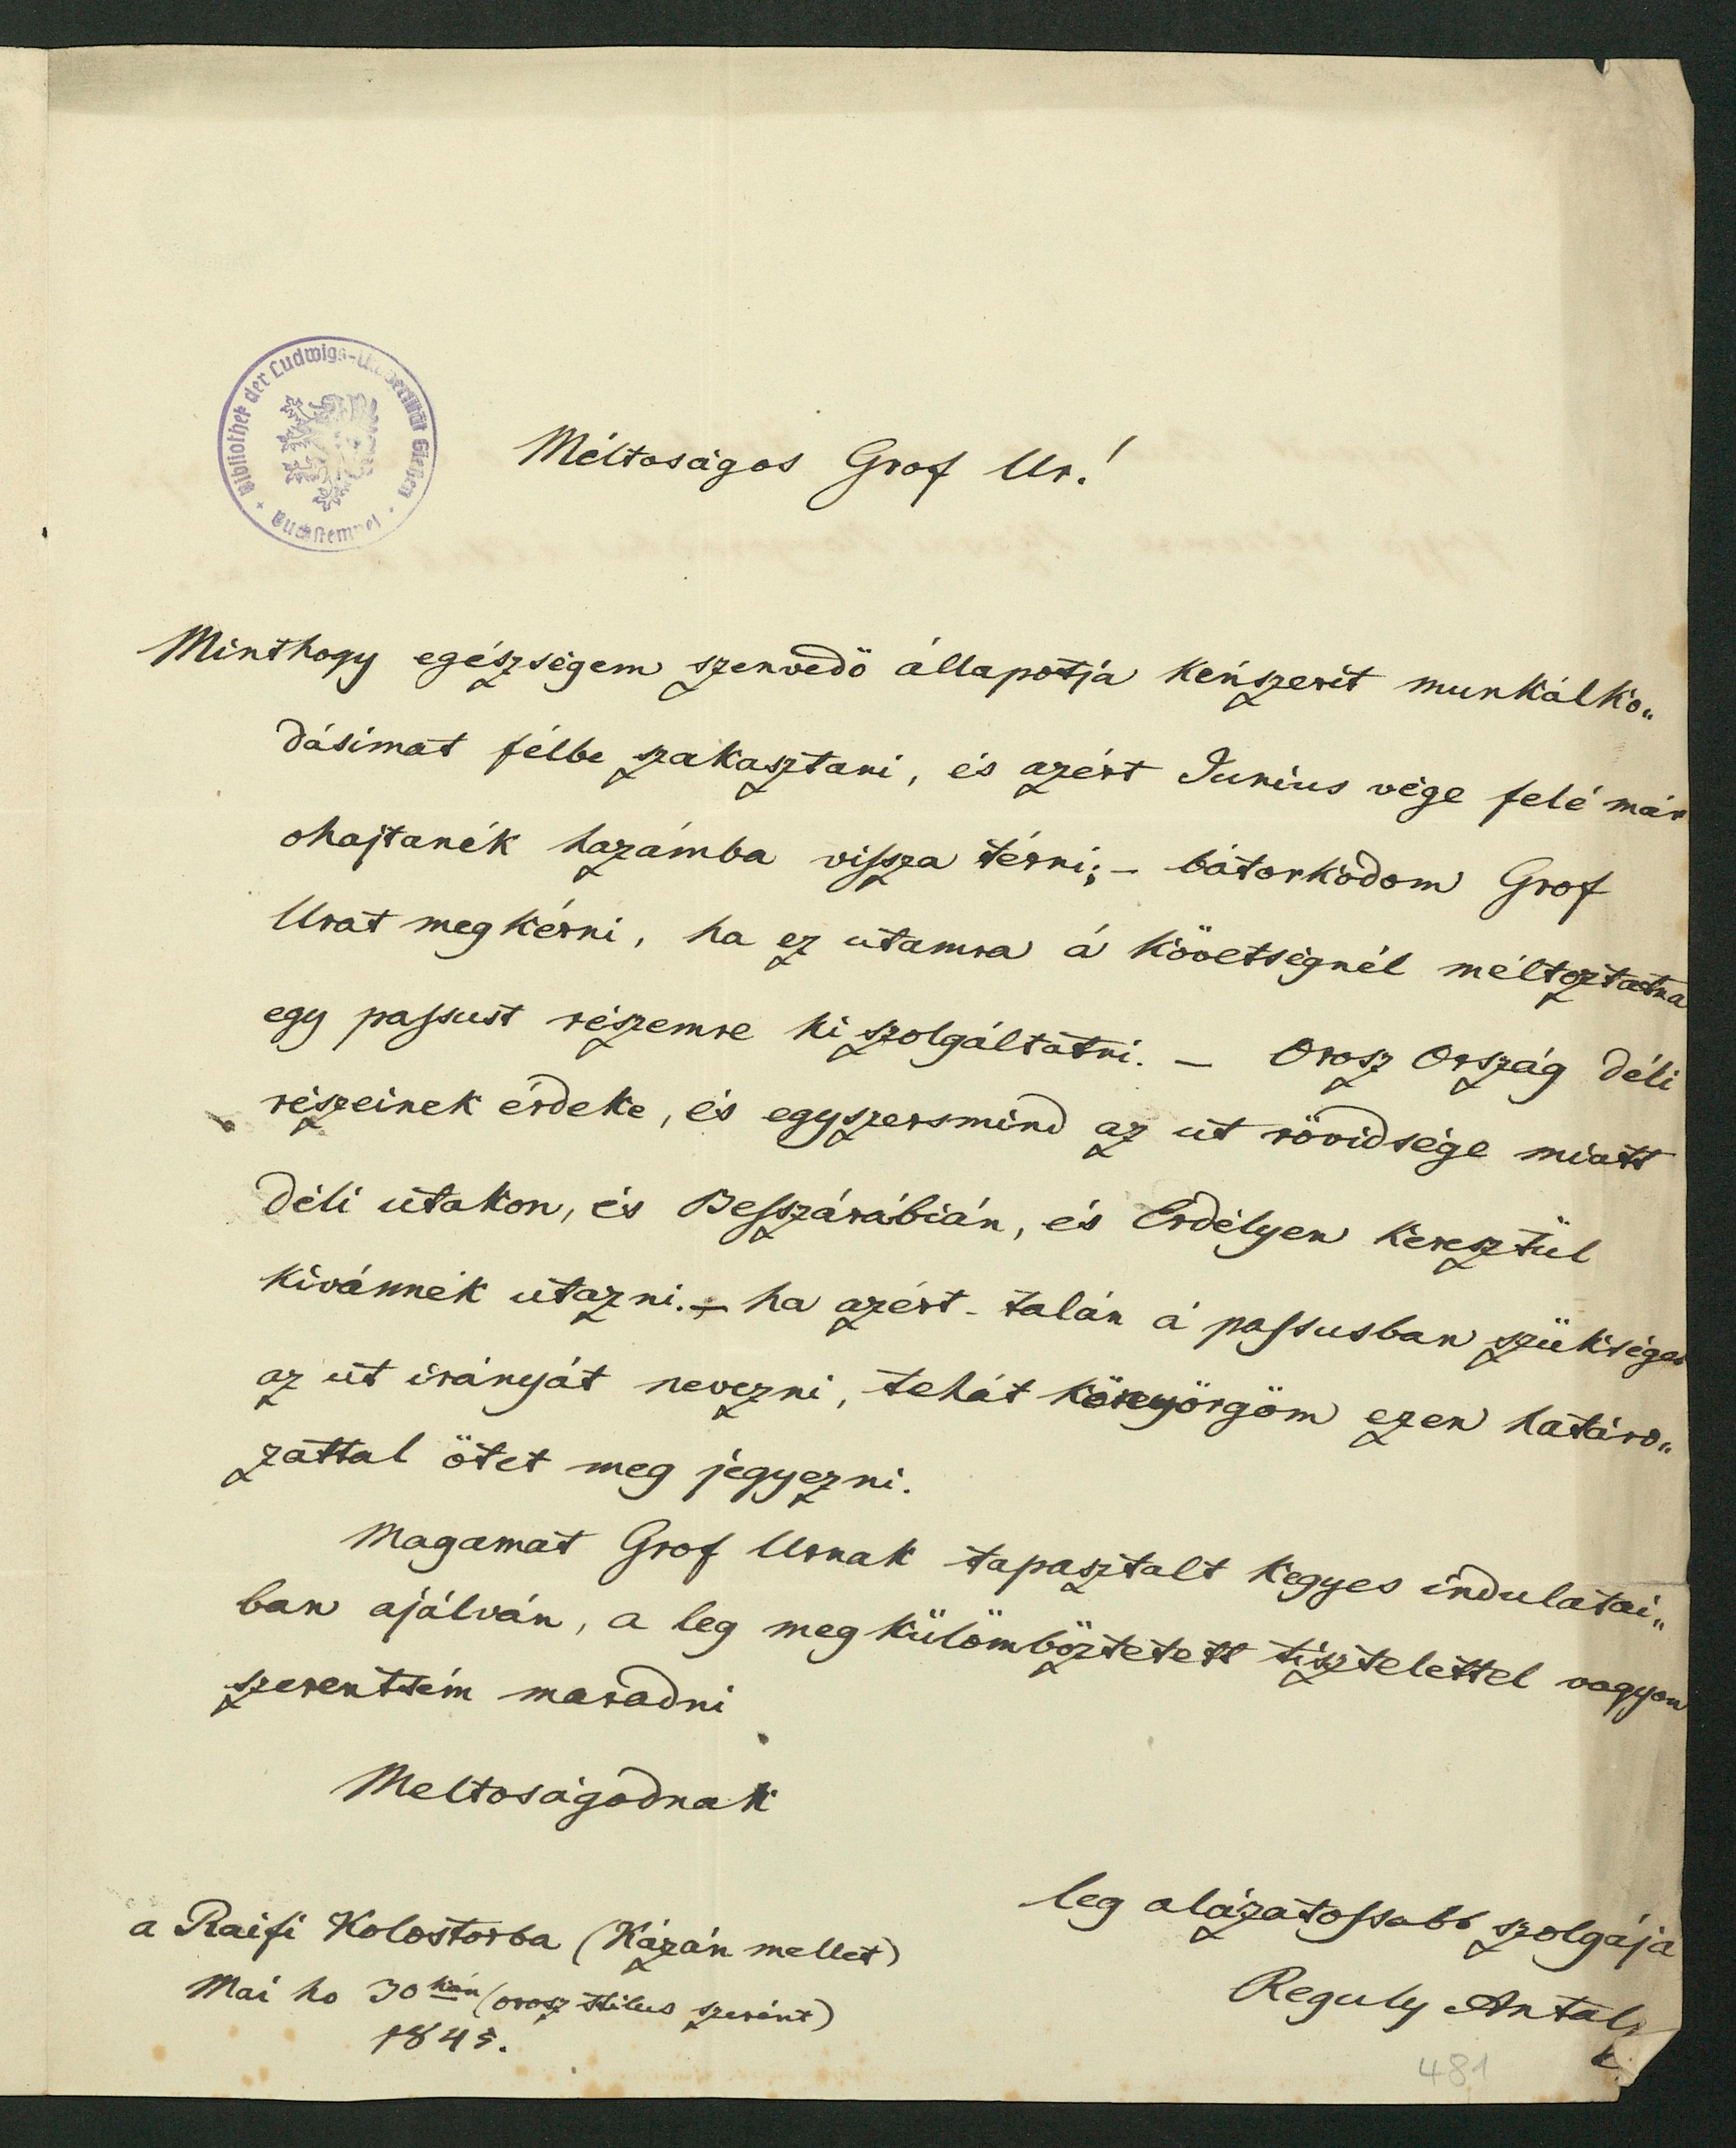 Bibliothek der Ludwigs-Universität Gießen
Buchstempel
Méltoságos Grof Ur!
Minthogy egészségem szenvedö állapotja kénszerit munkálko„
dásimat félbe szakasztani, és azért Junius vége felé már
ohajtanék hazámba vissza térni; – bátorkodom Grof
Urat meg kérni, ha ez utamra á követségnél méltoztatna
egy passust részemre ki szolgáltatni. – Orosz Ország déli
részeinek érdeke, és egyszersmind az ut rövidsége miatt
déli utakon, és Besszárábián, és Erdélyen keresztül
kivánnék utazni. – ha azért - talán á passusban szükséges
az ut irányját nevezni, tehát könyörgöm ezen határo„
zattal ötet meg jegyezni.
Magamat Grof Urnak tapasztalt kegyes indulatai„
ban ajálván, a leg meg külömböztetett tisztelettel vagyon
szerenttém maradni
Meltoságodnak
leg alázatossabb szolgája
Reguly Antal
a Raifi Kolostorba (Kázán mellet)
Mai ho 30 kán (orosz stilus szerint)
1845.
481